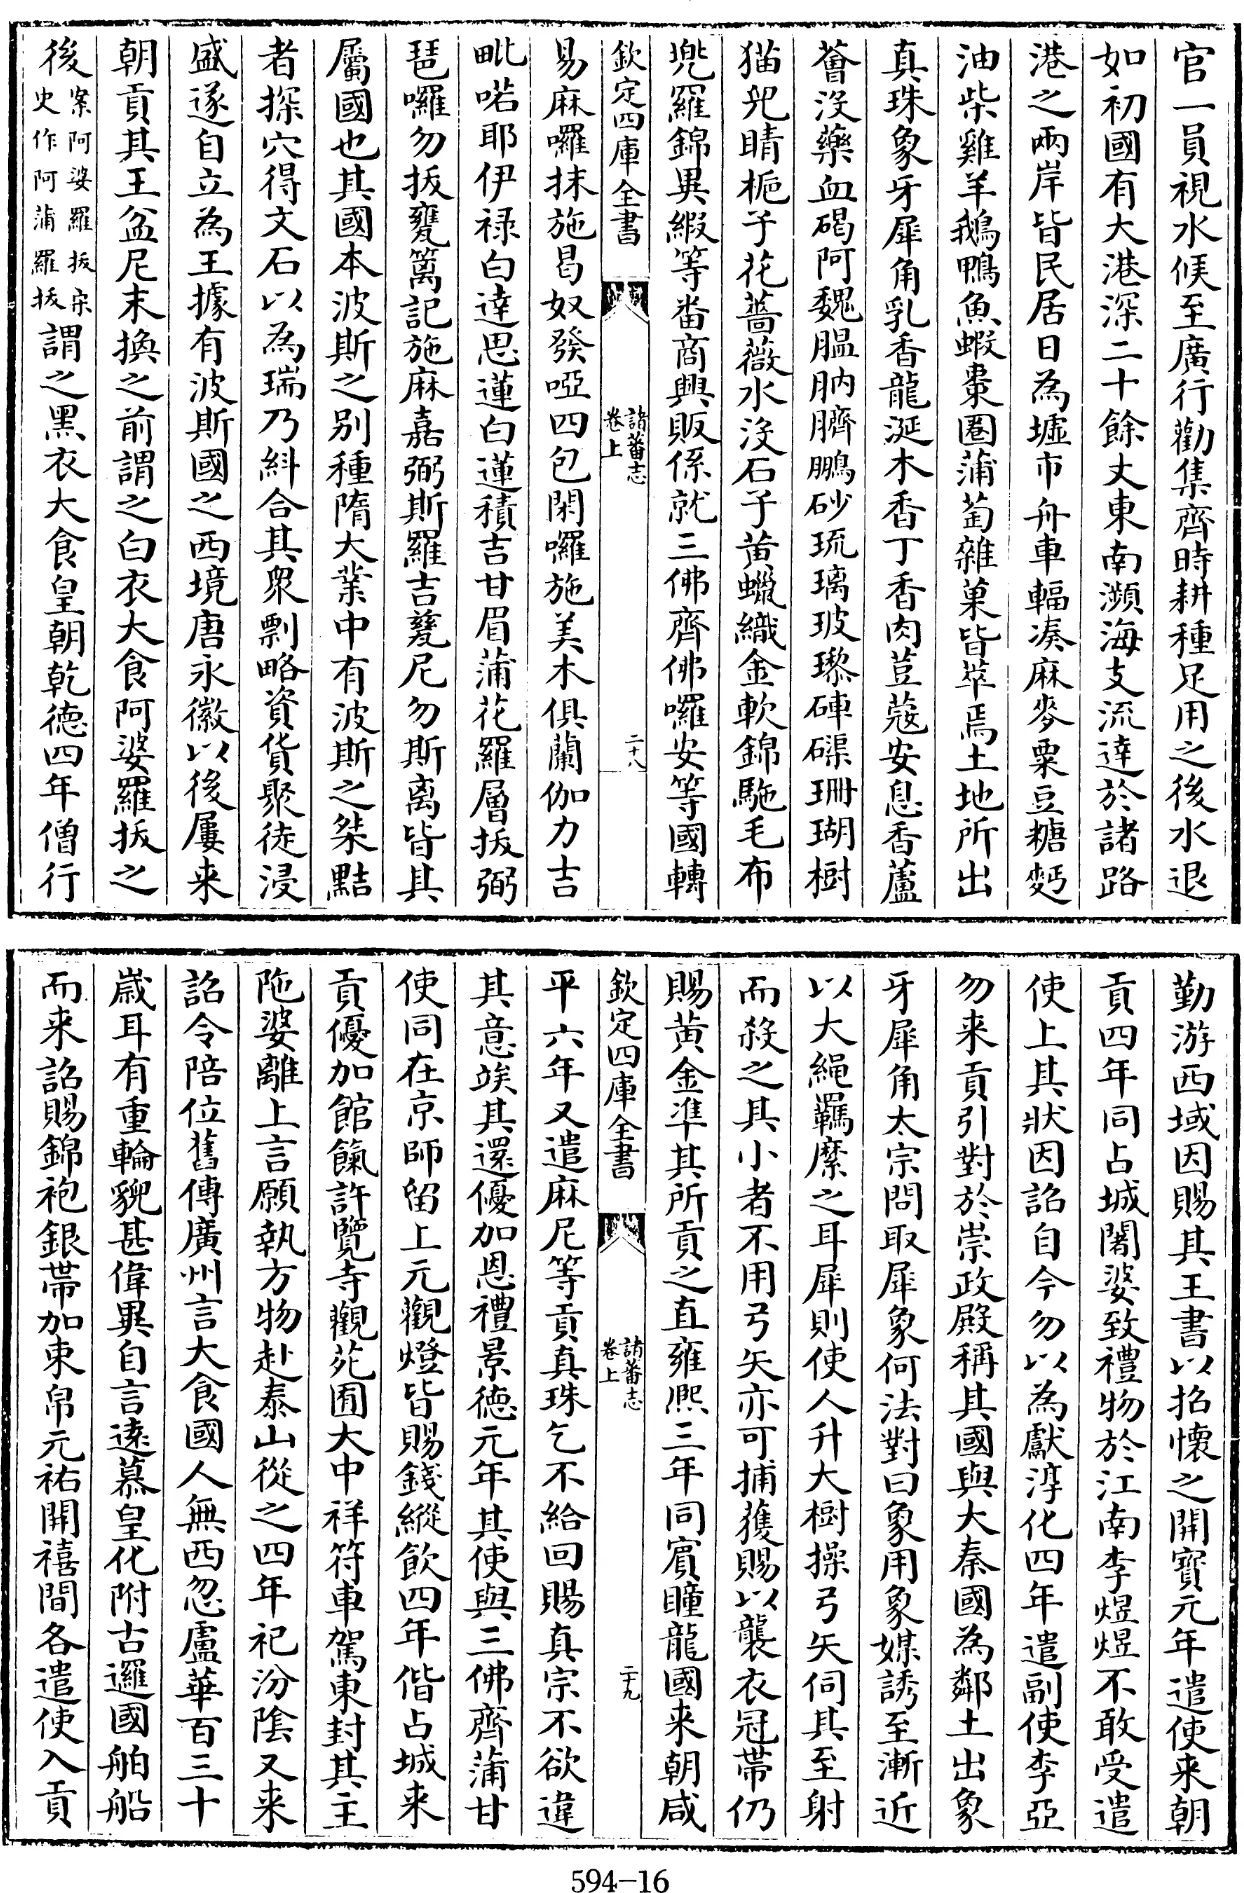 官一員視水候至廣行勸集齊時耕種足用之後水退
如初國有大港深二十餘丈東南瀕海支流達於諸路
港之兩岸皆民居日為墟市舟車輻湊麻麥粟豆糖麪
油柴雞羊鵝鴨魚蝦棗圈蒲萄雜菓皆萃焉土地所出
真珠象牙犀角乳香龍涎木香丁香肉荳蔻安息香蘆
薈沒藥血碣阿魏膃肭臍鵬砂琉璃玻瓈硨磲珊瑚樹
猫兒睛梔子花薔薇水沒石子黃蠟織金軟錦駞毛布
兠羅錦異緞等畨商興販係就三佛齊佛囉安等國轉
欽定四庫全書
諸蕃志
卷上
二十八
易麻囉抹施曷奴發啞四包閑囉施美木俱蘭伽力吉
毗喏耶伊禄白達思蓮白蓮積吉甘眉蒲花羅層拔弼
琶囉勿拔甕篱記施麻嘉弼斯羅吉甆尼勿斯离皆其
屬國也其國本波斯之别種隋大業中有波斯之桀黠
者探穴得文石以為瑞乃糾合其衆剽略資貨聚徒浸
盛遂自立為王據有波斯國之西境唐永徽以後屢来
朝貢其王盆尼末換之前謂之白衣大食阿婆羅拔之
後案阿婆羅拔宋史作阿蒲羅拔謂之黑衣大食皇朝乾德四年僧行
勤游西域因賜其王書以招懷之開寶元年遣使来朝
貢四年同占城闍婆致禮物於江南李煜煜不敢受遣
使上其狀因詔自今勿以為獻淳化四年遣副使李亞
勿来貢引對於崇政殿稱其國與大秦國為鄰土出象
牙犀角太宗問取犀象何法對曰象用象媒誘至漸近
以大繩羈縻之耳犀則使人升大樹操弓矢伺其至射
而殺之其小者不用弓矢亦可捕獲賜以襲衣冠帶仍
賜黃金準其所貢之直雍熙三年同賔瞳龍國来朝咸
欽定四庫全書
諸蕃志
卷上
二十九
平六年又遣麻尼等貢真珠乞不給回賜真宗不欲違
其意竢其還優加恩禮景德元年其使與三佛齊蒲甘
使同在京師留上元觀燈皆賜錢縱飲四年偕占城来
貢優加館餼許覽寺觀苑囿大中祥符車駕東封其主
陁婆離上言願執方物赴泰山從之四年祀汾隂又来
詔令陪位舊傳廣州言大食國人無西忽盧華百三十
歲耳有重輪貌甚偉異自言遠慕皇化附古邏國舶船
而来詔賜錦袍銀帶加束帛元祐開禧間各遣使入貢
594-16